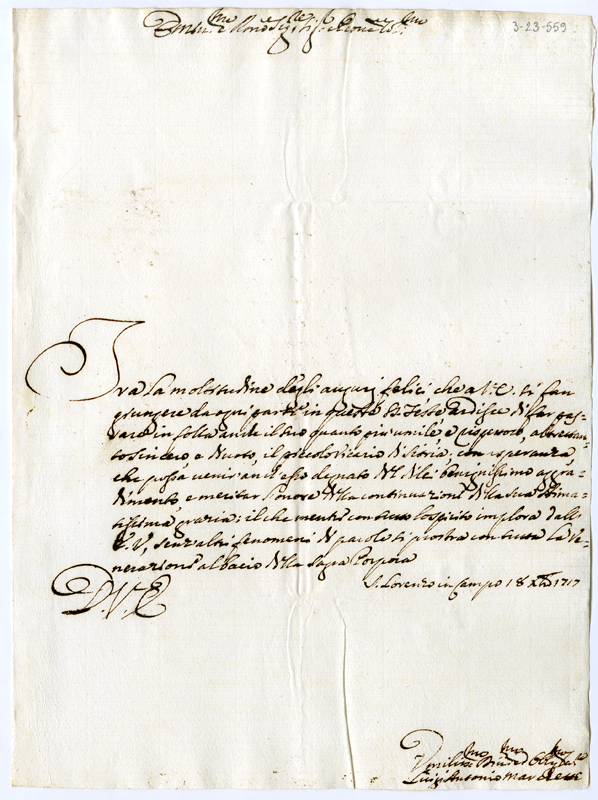 3-23-559
Emin.mo e Rev.mo Sig.re Sig.re e Prone Col.mo
Tra la moltitudine degli augurj felici, che a V. E. si fan
giungere da ogni parte in queste S.te Feste ardisce di far pas-
vare in folla anche il suo quanto più umile, e riveroso, altretan-
to sincero e divoto, il piccol Vicario di Astria, con isperanza
che possa venir anch'esso degnato del di lei benignissimo aggra-
dimento, e meritar l'onore della continuazione della sua stima-
tissima grazia; il che mentre con tutto lo spirito implora dall'
E. V., senz'altri fenomeni di parole si prostra con tutta la Ve-
nerazione al bacio della Sagra Porpora
S. Lorenzo in Campo 18 Xbre 1717
D. V. E.
Umiliss.mo Divot.mo ed Obblig.mo
Luigi Antonio